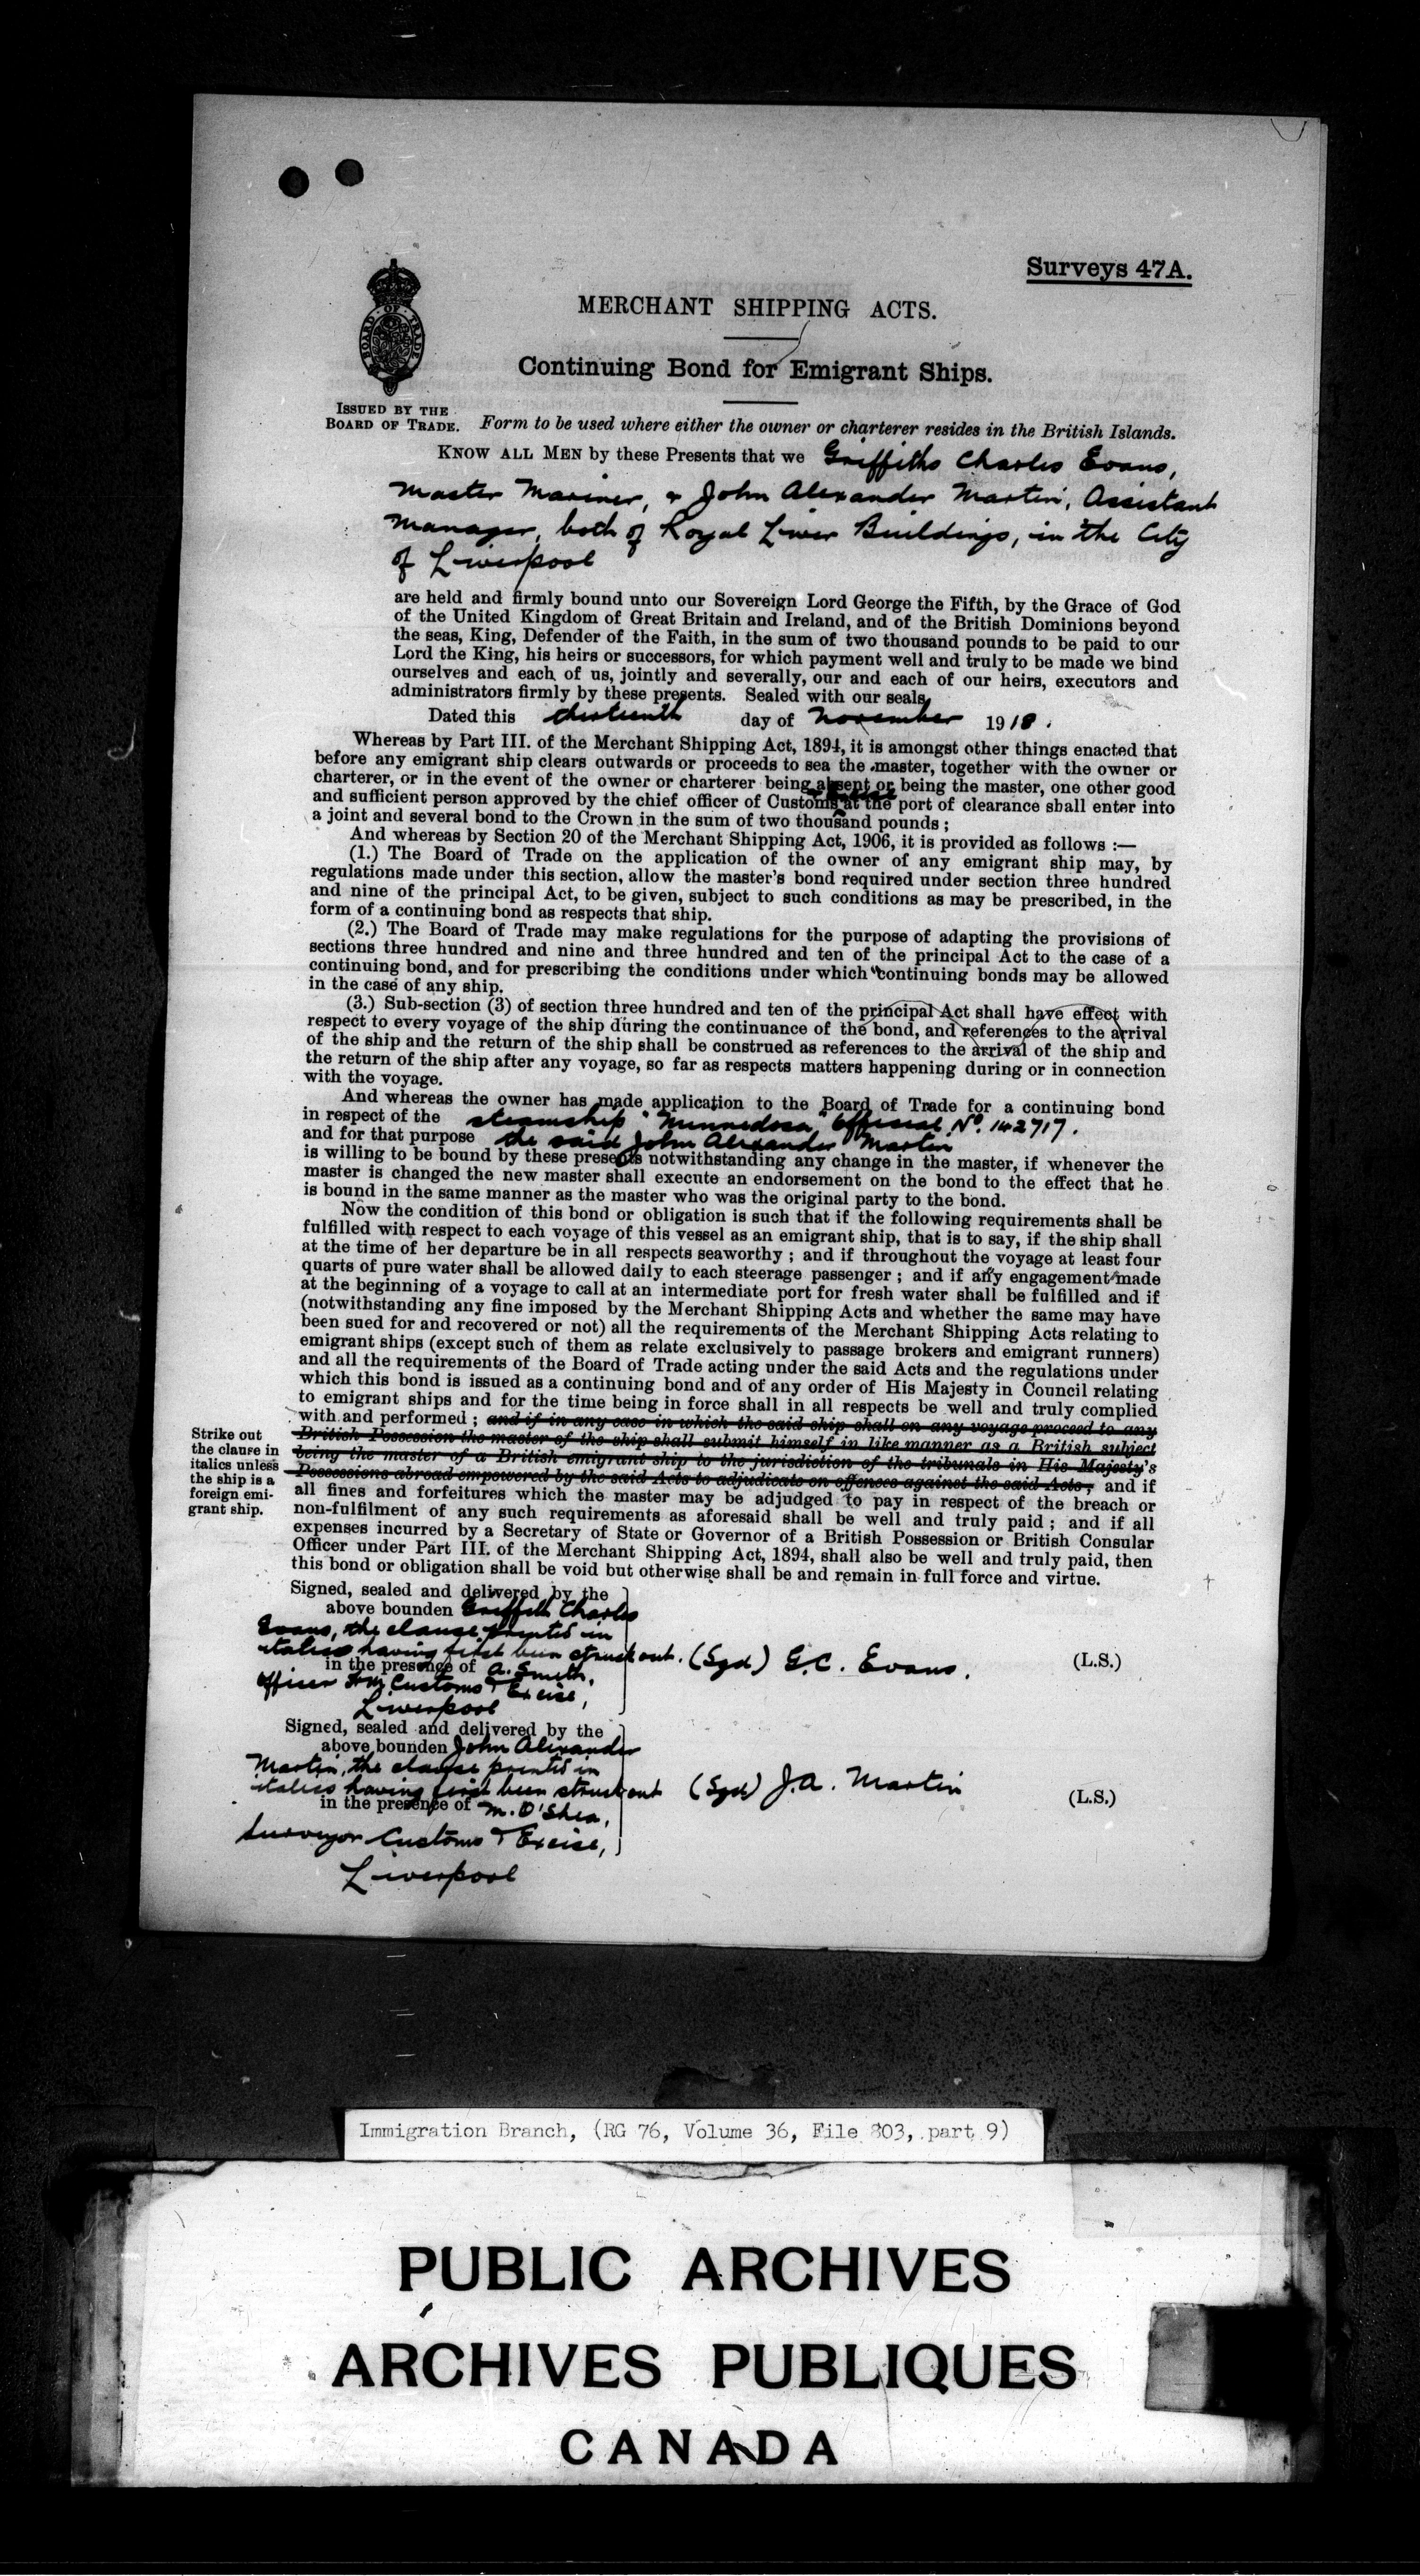 Surveys 47A.
BOARD OF TRADE
MERCHANT SHIPPING ACTS.
Continuing Bond for Emigrant Ships.
ISSUED BY THE
BOARD OF TRADE.
Form to be used where either the owner or charterer resides in the British Islands.
KNOW ALL MEN by these Presents that we Griffiths Charles Evans,
Master Mariner, & John Alexander Martin, Assistant
Manager, both of Royal Liver Buildings, in the City
of Liverpool
are held and firmly bound unto our Sovereign Lord George the Fifth, by the Grace of God
of the United Kingdom of Great Britain and Ireland, and of the British Dominions beyond
the seas, King, Defender of the Faith, in the sum of two thousand pounds to be paid to our
Lord the King, his heirs or successors, for which payment well and truly to be made we bind
ourselves and each of us, jointly and severally, our and each of our heirs, executors and
administrators firmly by these presents. Sealed with our seals.
Dated this thirteenth day of November 1918.
Whereas by Part III. of the Merchant Shipping Act, 1894, it is amongst other things enacted that
before any emigrant ship clears outwards or proceeds to sea the master, together with the owner or
charterer, or in the event of the owner or charterer being absent or being the master, one other good
and sufficient person approved by the chief officer of Customs & Excise at the port of clearance shall enter into
a joint and several bond to the Crown in the sum of two thousand pounds ;
And whereas by Section 20 of the Merchant Shipping Act, 1906, it is provided as follows :—
(1.) The Board of Trade on the application of the owner of any emigrant ship may, by
regulations made under this section, allow the master's bond required under section three hundred
and nine of the principal Act, to be given, subject to such conditions as may be prescribed, in the
form of a continuing bond as respects that ship.
(2.) The Board of Trade may make regulations for the purpose of adapting the provisions of
sections three hundred and nine and three hundred and ten of the principal Act to the case of a
continuing bond, and for prescribing the conditions under which continuing bonds may be allowed
in the case of any ship.
(3.) Sub-section (3) of section three hundred and ten of the principal Act shall have effect with
respect to every voyage of the ship during the continuance of the bond, and references to the arrival
of the ship and the return of the ship shall be construed as references to the arrival of the ship and
the return of the ship after any voyage, so far as respects matters happening during or in connection
with the voyage.
And whereas the owner has made application to the Board of Trade for a continuing bond
in respect of the steamship "Minnedosa" Official No. 142717.
and for that purpose the said John Alexander Martin
is willing to be bound by these presents notwithstanding any change in the master, if whenever the
master is changed the new master shall execute an endorsement on the bond to the effect that he
is bound in the same manner as the master who was the original party to the bond.
Now the condition of this bond or obligation is such that if the following requirements shall be
fulfilled with respect to each voyage of this vessel as an emigrant ship, that is to say, if the ship shall
at the time of her departure be in all respects seaworthy ; and if throughout the voyage at least four
quarts of pure water shall be allowed daily to each steerage passenger ; and if any engagement made
at the beginning of a voyage to call at an intermediate port for fresh water shall be fulfilled and if
(notwithstanding any fine imposed by the Merchant Shipping Acts and whether the same may have
been sued for and recovered or not) all the requirements of the Merchant Shipping Acts relating to
emigrant ships (except such of them as relate exclusively to passage brokers and emigrant runners)
and all the requirements of the Board of Trade acting under the said Acts and the regulations under
which this bond is issued as a continuing bond and of any order of His Majesty in Council relating
to emigrant ships and for the time being in force shall in all respects be well and truly complied
with and performed ; and if in any case in which the said ship shall on any voyage proceed to any
British Possession the master of the ship shall submit himself in like manner as a British subject
being the master of a British emigrant ship to the jurisdiction of the tribunals in His Majesty's
Possessions abroad empowered by the said Acts to adjudicate on offences against the said Acts ; and if
all fines and forfeitures which the master may be adjudged to pay in respect of the breach or
non-fulfilment of any such requirements as aforesaid shall be well and truly paid ; and if all
expenses incurred by a Secretary of State or Governor of a British Possession or British Consular
Officer under Part III. of the Merchant Shipping Act, 1894, shall also be well and truly paid, then
this bond or obligation shall be void but otherwise shall be and remain in full force and virtue.
Strike out
the clause in
italics unless
the ship is a
foreign emi-
grant ship.
Signed, sealed and delivered by the
above bounden Griffith Charles
Evans, the clause printed in
italics having first been struck out.
in the presence of A. Smith,
Officer HM Customs & Excise,
Liverpool
(Sgd) G.C. Evans.
(L.S.)
Signed, sealed and delivered by the
above bounden John Alexander
Martin, the clause printed in
italics having first been struck out
in the presence of M. O'Shea,
Surveyor Customs & Excise,
Liverpool
(Sgd) J.A. Martin
(L.S.)
Immigration Branch, (RG 76, Volume 36, File 803, part 9)
PUBLIC ARCHIVES
ARCHIVES PUBLIQUES
CANADA